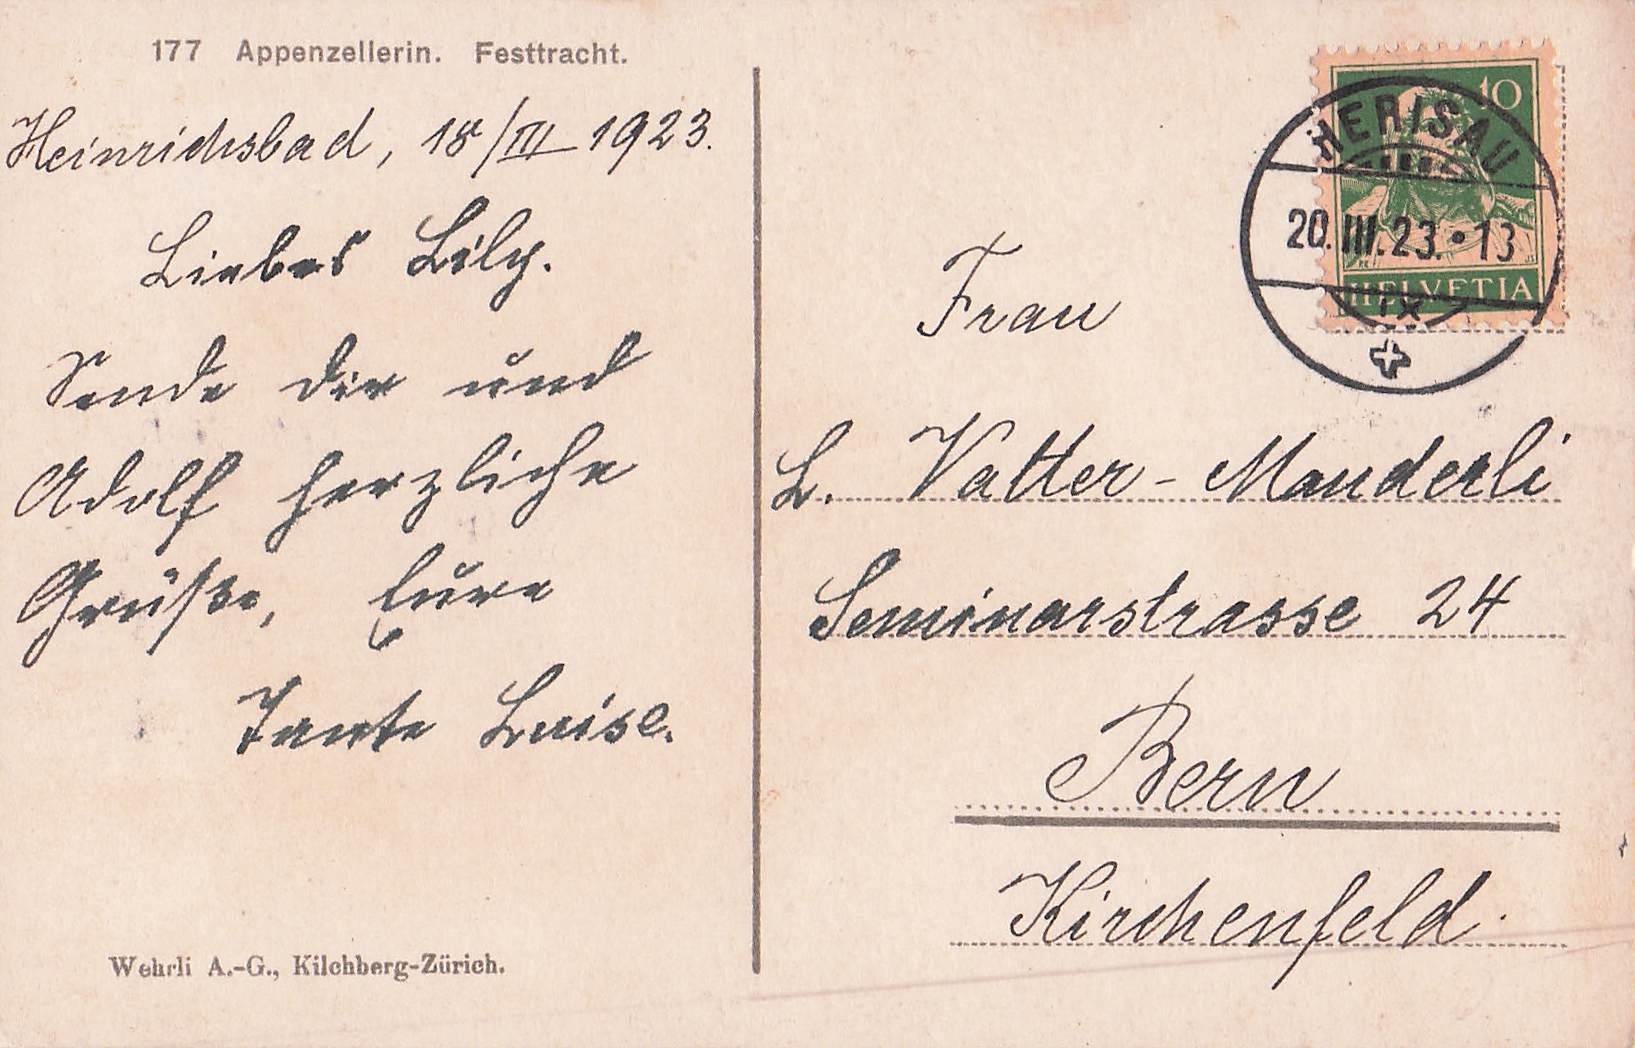 177 Appenzellerin. Festtracht.
Heinrichsbad, 18/III 1923.
Liebes Lily.
Sende dir und
Adolf herzliche
Grüße, Eure
Tante Luise.
Wehrli A.-G., Kilchberg-Zürich.
10
HELVETIA
HERISAU
20.III.23.•13
IX
Frau
L. Vatter-Mauderli
Seminarstrasse 24
Bern
Kirchenfeld.